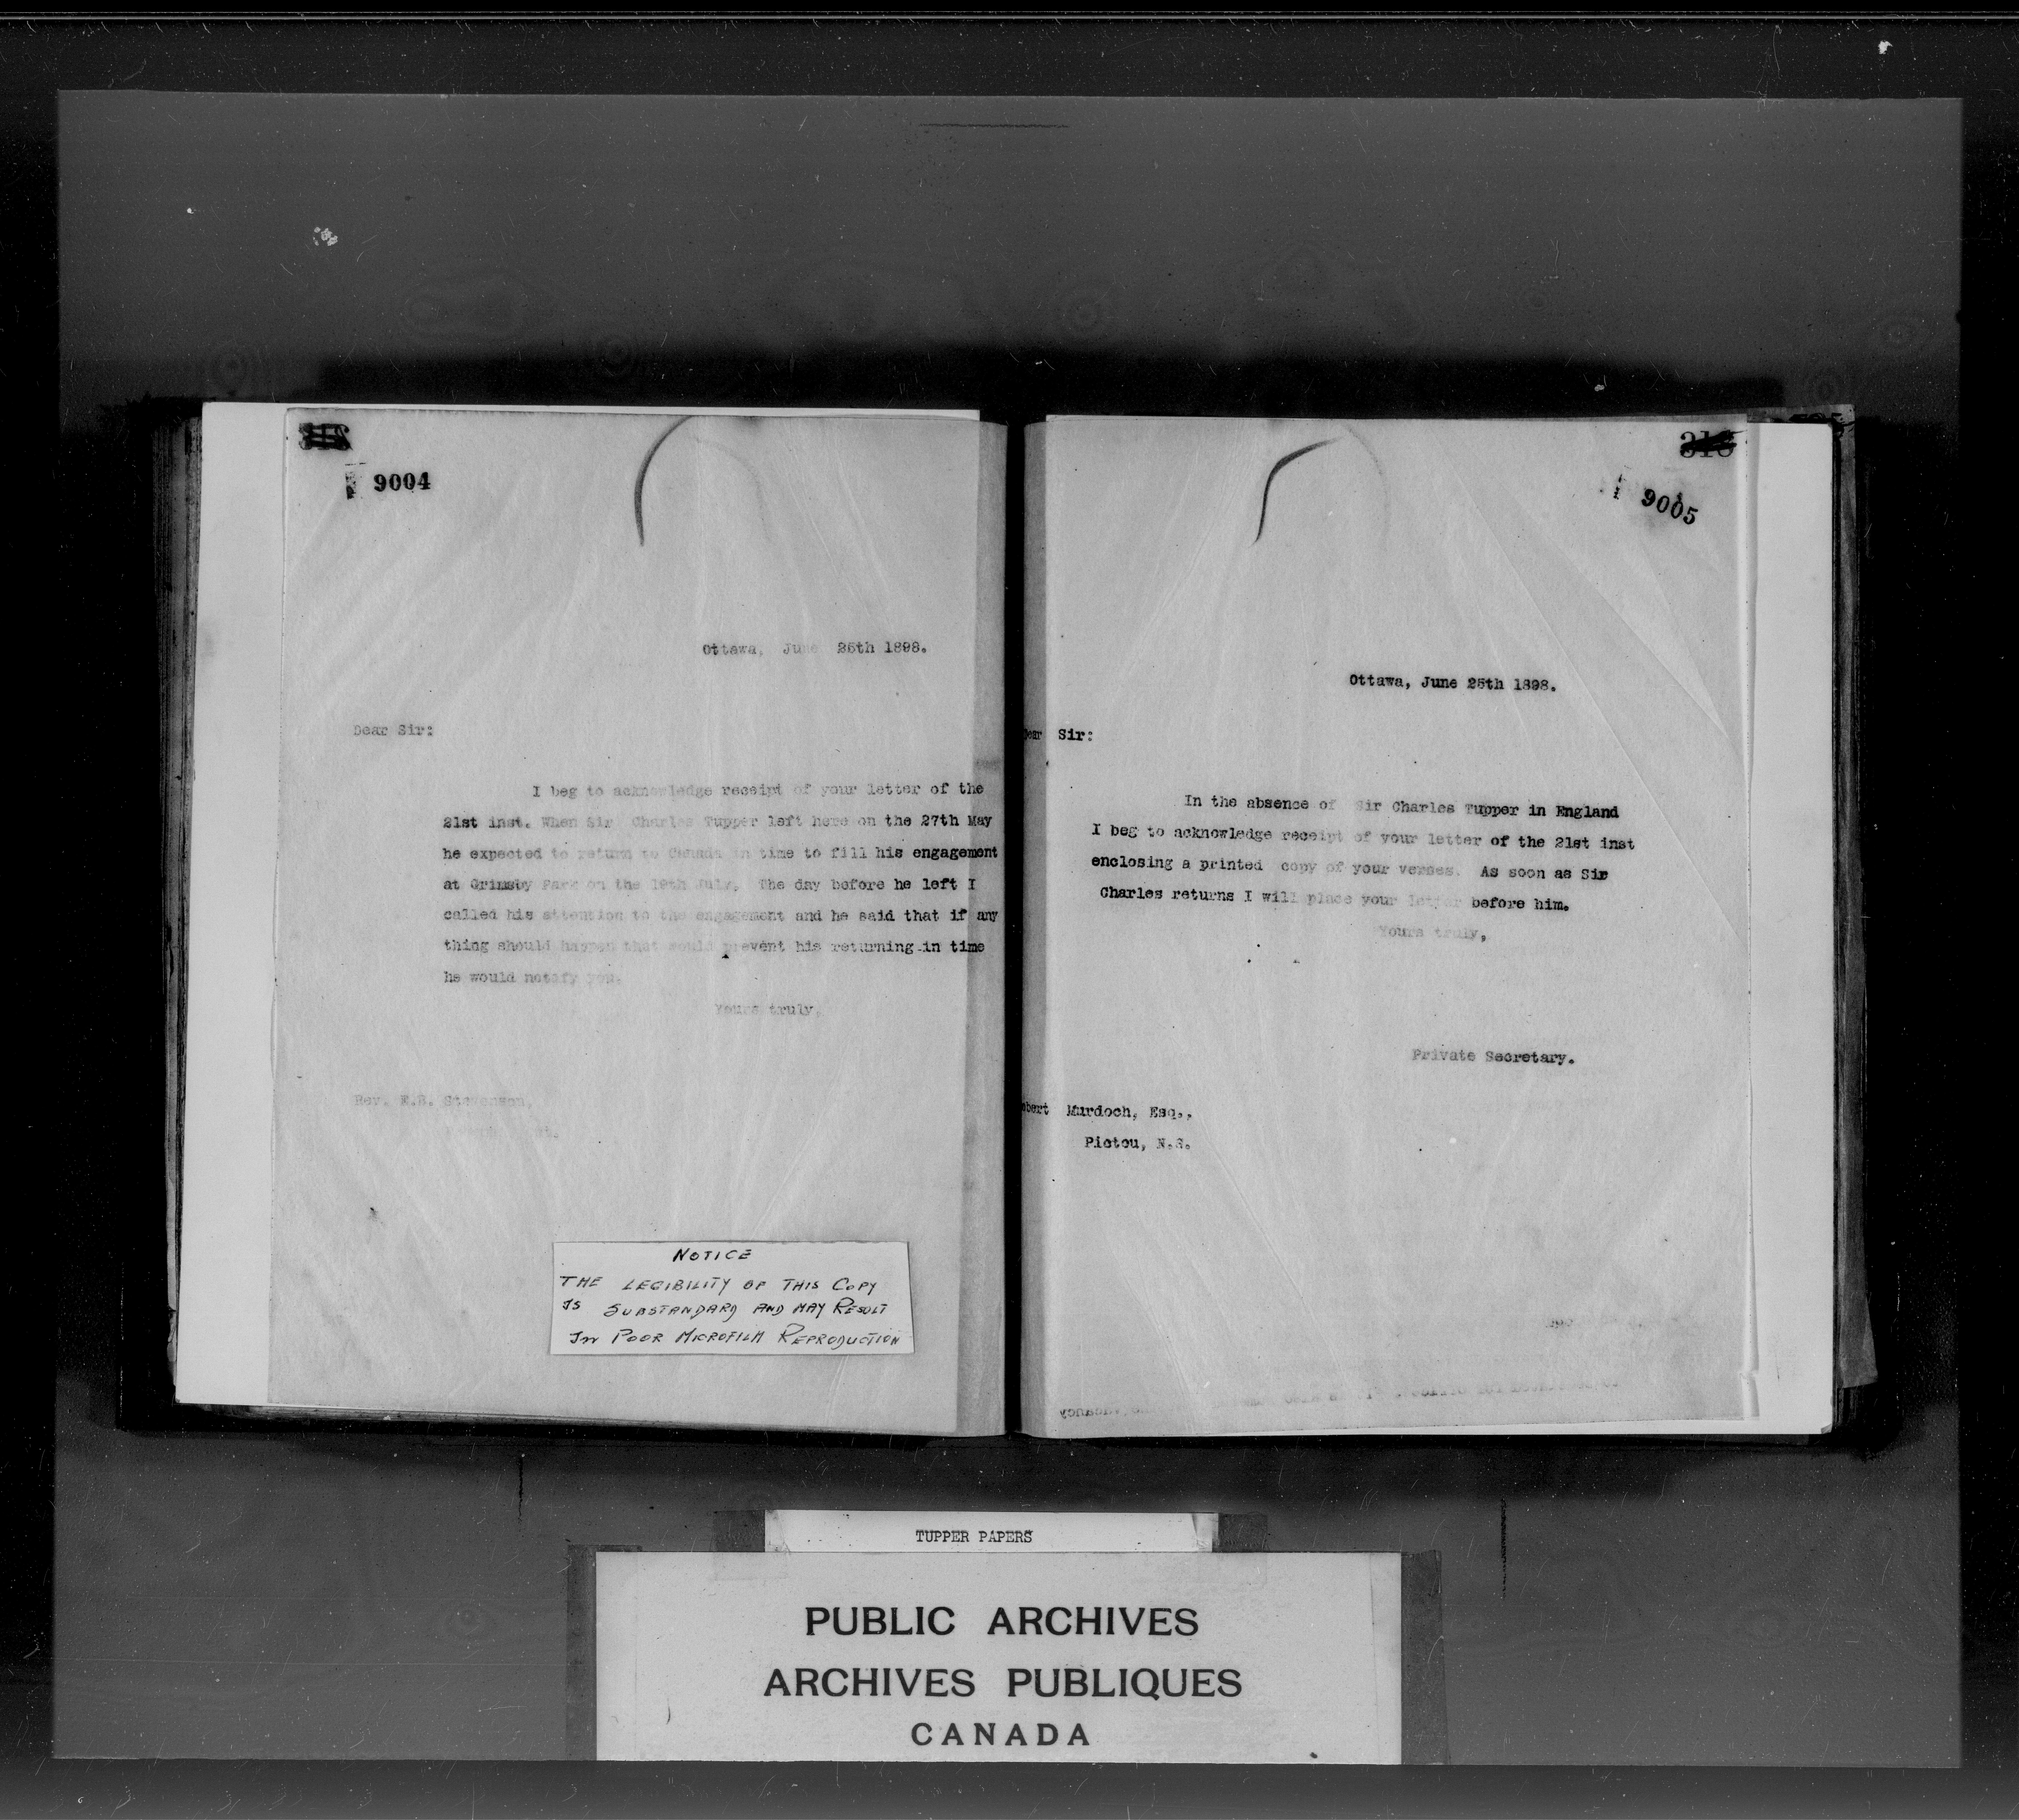 9004
Ottawa, June 25th 1898.
Dear Sir:
I beg to acknowledge receipt of your letter of the
21st inst. When Sir Charles Tupper left here on the 27th May
he expected to return to Canada in time to fill his engagement
at Grimsby Park on the 19th July. The day before he left I
called his attention to the engagement and he said that if any
thing should happen that would prevent his returning in time
he would notify you.
Yours truly,
Rev. E.B. Stevenson,
NOTICE
THE LEGIBILITY OF THIS COPY
IS SUBSTANDARD AND MAY RESULT
IN POOR MICROFILM REPRODUCTION
318
9005
Ottawa, June 25th 1898.
Dear Sir:
In the absence of Sir Charles Tupper in England
I beg to acknowledge receipt of your letter of the 21st inst
enclosing a printed copy of your verses. As soon as Sir
Charles returns I will place your letter before him.
Yours truly,
Private Secretary.
obert Murdoch, Esq.,
Pictou, N.S.
TUPPER PAPERS
PUBLIC ARCHIVES
ARCHIVES PUBLIQUES
CANADA